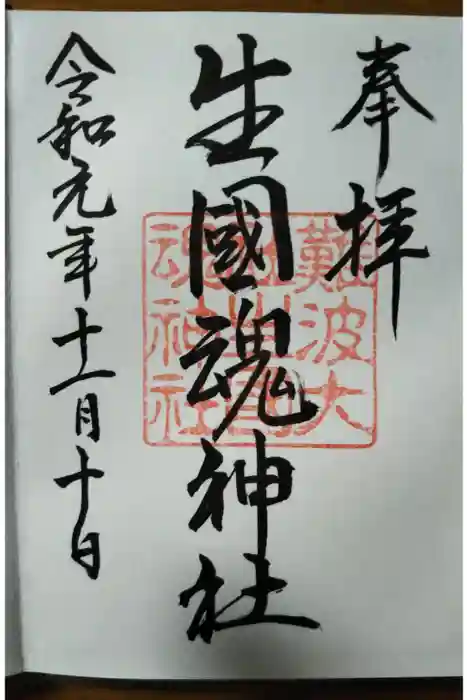 奉拝
生國魂神社
難波大
社生國
魂神社
令和元年十一月十日